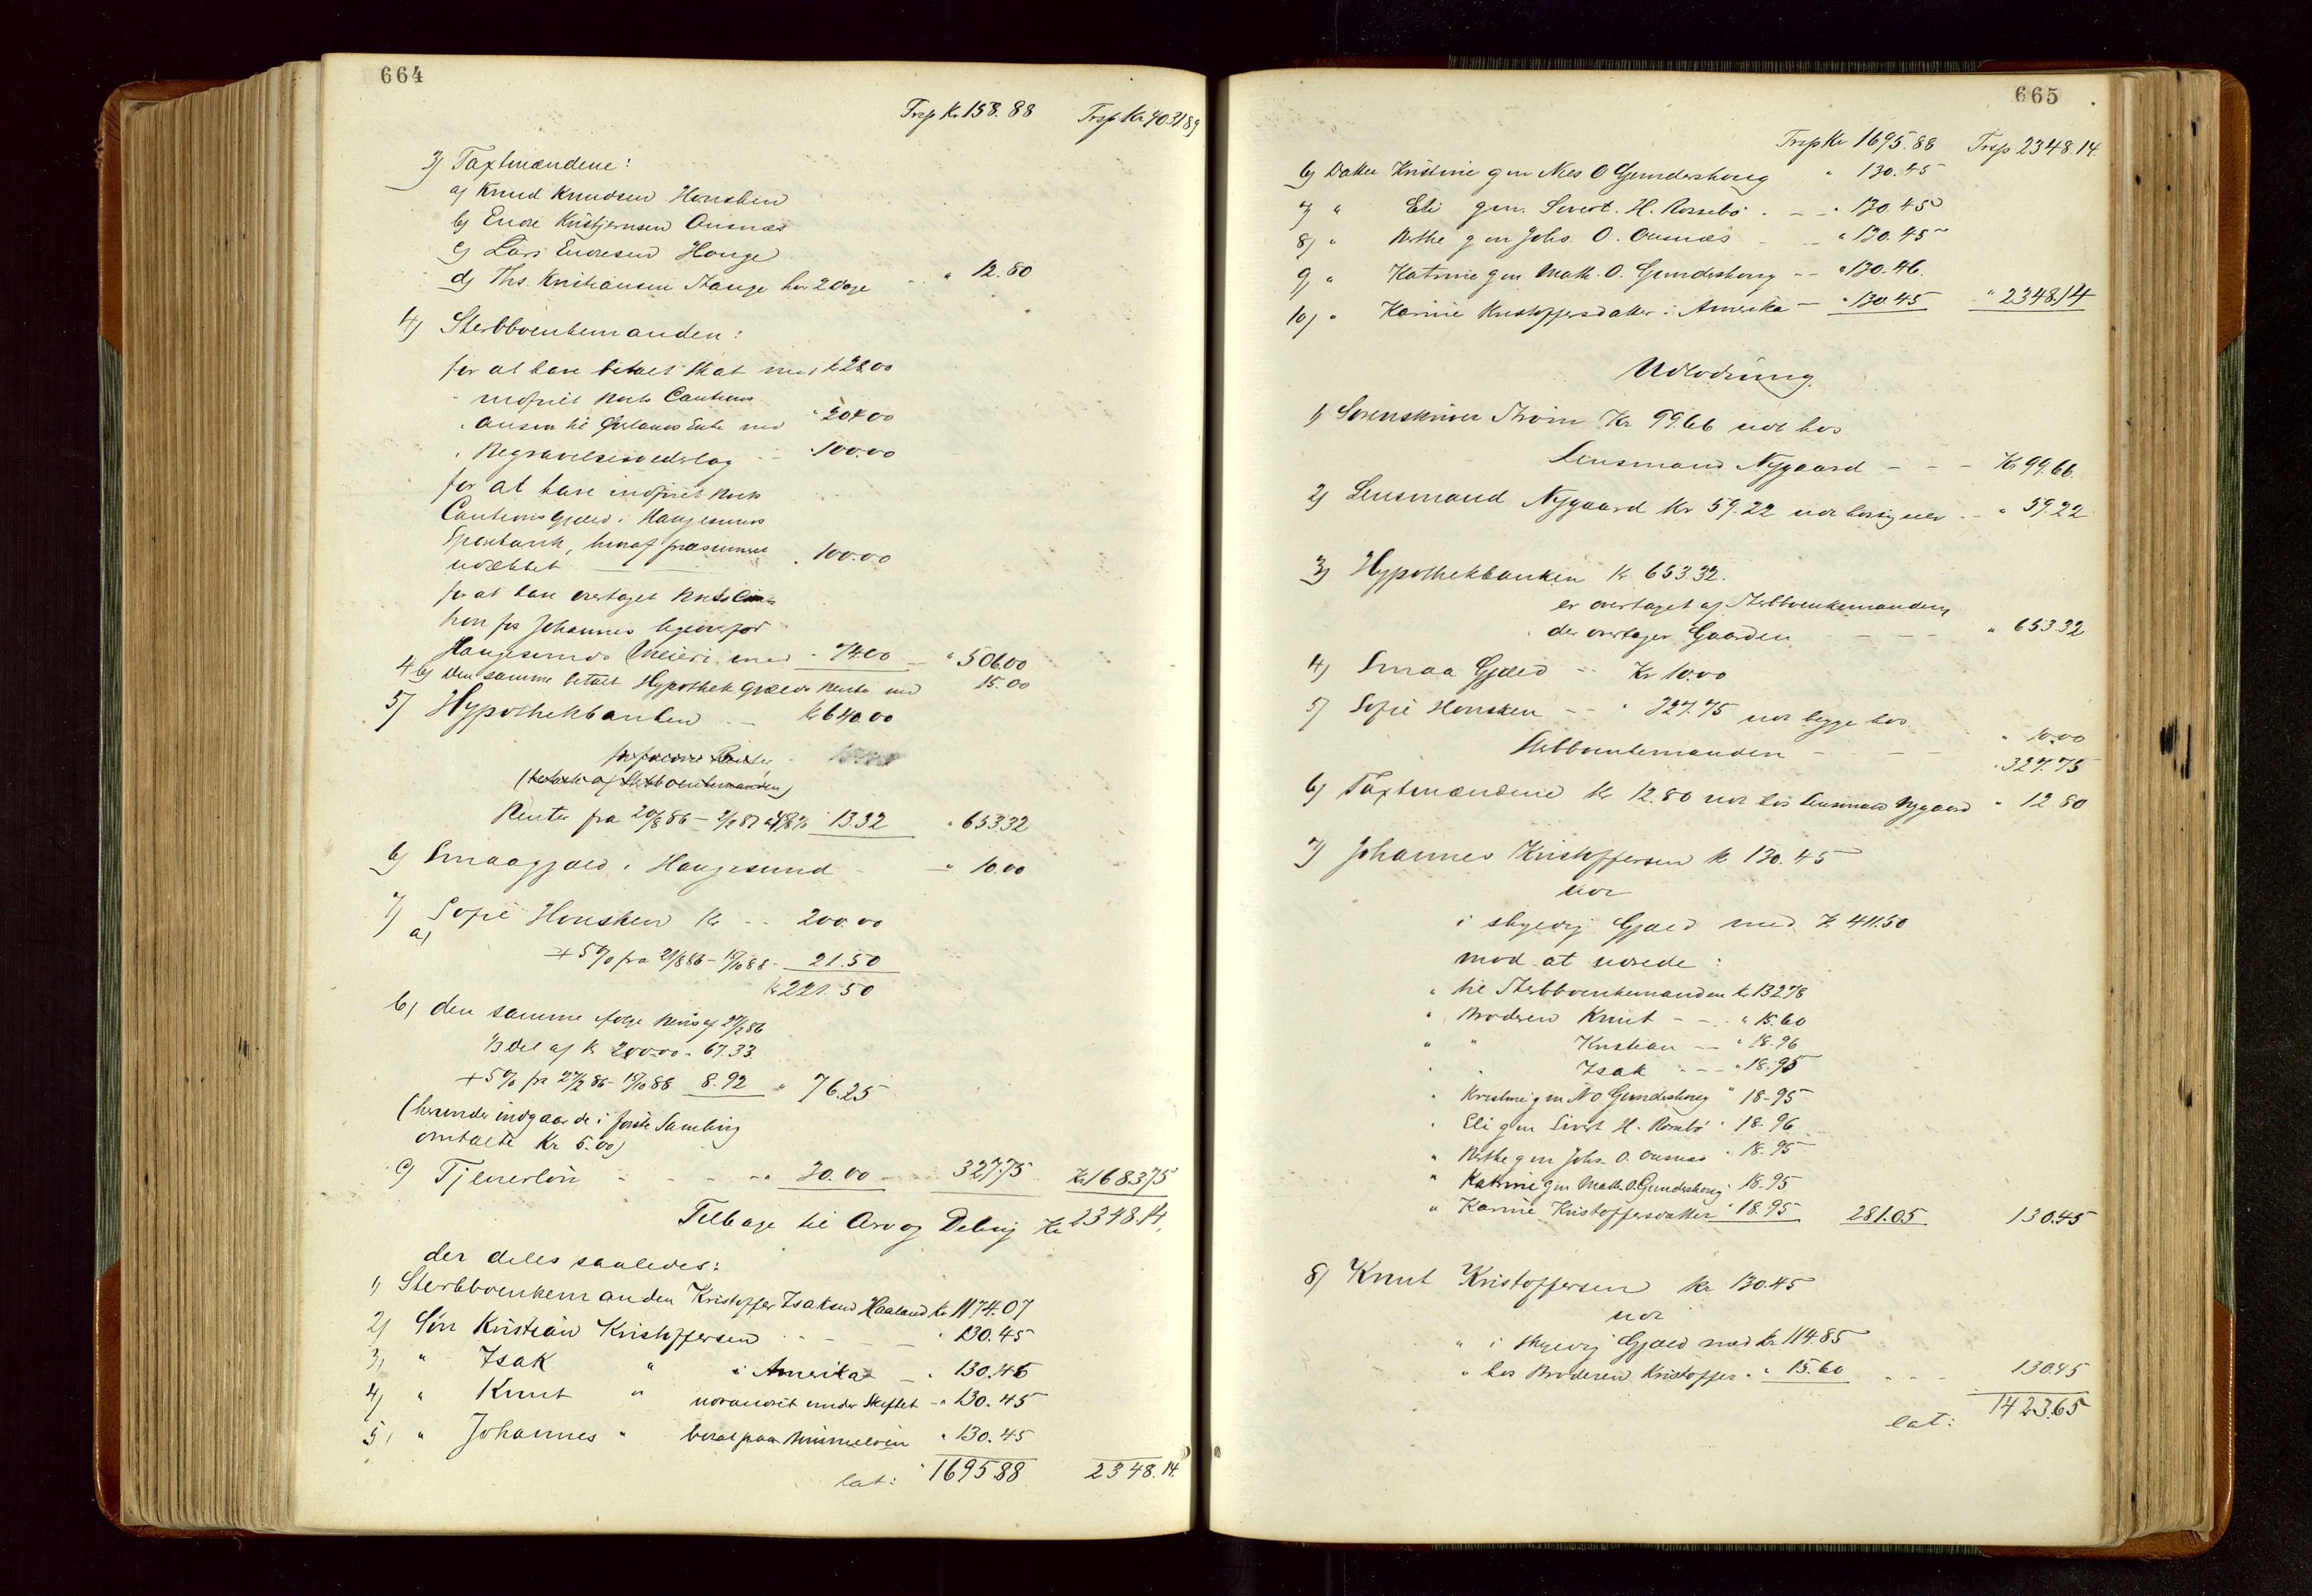 664
Trsp Kr 158.88 Trsp Kr 4031.89
3) Taxtmændene:
a) Knud Knudsen Honsken
b) Endre Kristjernsen Ousnæs
c) Lars Endresen Hauge
d) Ths. Kristiansen Stange for 2 Dage - " 12.80
4) Sterbboenkemanden:
for at have betalt Skat med k 28.00
" indfriet Boets Cautions
" ansvar til Enke med " 204.00
" Begravelsesvederlag - - " 100.00
for at have indfriet Boets
Cautionsgjæld i Haugesunds
Sparebank, heraf
udækket " 100.00
for at have overtaget Boets
for Johannes ligeoverfor
Haugesunds Meieri med " 74.00 - " 506.00
4 b) Den samme betalt Hypothekgjælds Rente med 15.00
5) Hypothekbanken - - kr 640.00
(betalt af Sterbboenkemanden)
Renter fra 20/8 86 - 13.32 " 653.32
6) Smaagjæld i Haugesund - - " 10.00
7) Sofie Honsken Kr - - 200.00
a)
+ 5% fra 21/8 86 - 15/10 88 - 21.50
kr 221.50
b) den samme ifølge Bevis af 27/2 86
1/3 Del af kr 200.00 - 67.33
+ 5% fra 27/2 86 - 15/10 88 8.92 " 76.25
(herunder indgaar de i første Samling
omtalte Kr 5.00)
c) Tjenerløn - - - " 30.00 - 327.75 Kr 1683.75
Tilbage til Arv og Deling Kr 2348.14.
der deles saaledes:
1) Sterbboenkemanden Kristoffer Isaksen Haaland kr 1174.07
2) Søn Kristian Kristoffersen - - - " 130.45
3) " Isak " i Amerika - " 130.45
4) " Knut " udvandret under Skiftet - " 130.45
5) " Johannes " bosat paa " 130.45
lat: " 1695.88 2348.14.
665
Trsp Kr 1695.88 Trsp 2348.14.
6) Datter Kristine gm Niels O Gundershoug " 130.45
7) " Eli gm. Sivert. H. Rossebø . - - " 130.45
8) " Berthe gm Johs. O. Ousnæs - - " 130.45
9) " Katrine gm Math. O. Gundershoug - - " 130.46.
10) " Karine Kristoffersdatter i Amerika - " 130.45 " 2348.14
Udlodning.
1) Sorenskriver Kr 99.66 udl hos
Lensmand Nygaard - - - Kr 99.66.
2) Lensmand Nygaard Kr. 59.22 udl hos sig selv - - " 59.22
3) Hypothekbanken kr 653.32.
er overtaget af Sterbboenkemanden,
der overtager Gaarden - - - - " 653.32
4) Smaa Gjæld - - Kr 10.00
5) Sofie Honsken - - " 327.75 udl begge hos
Sterbboenkemanden - - - - " 10.00
" 327.75
6) Taxtmændene kr 12.80 udl hos Lensmand Nygaard " 12.80
7) Johannes Kristoffersen kr 130.45
udl
i skyldig Gjæld med kr 411.50
mod at udrede:
" til Sterbboenkemanden kr 132.78
" Broderen Knut - - - " 15.60
" " Kristian - - " 18.96
" " Isak - - - " 18.95
" Kristine gm N O Gundershoug " 18.95
" Eli gm Sivert H. Rossebø " 18.96
" Berthe gm Johs. O. Ousnæs " 18.95
" Katrine gm Math. O. Gundershoug 18.95
" Karine Kristoffersdatter " 18.95 281.05 130.45
8) Knut Kristoffersen kr 130.45
udl
" i skyldig Gjæld med kr 114.85
" hos Broderen Kristoffer " " 15.60 - - - 130.45
lat: 1423.65